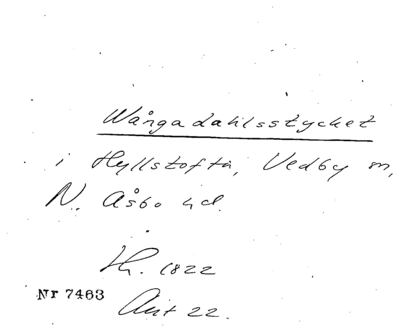 Wångadahlsstycket
i Hyllstofta, Vedby sn,
N. Åsbo hd.
Th. 1822
Nr 7463
Akt 22.